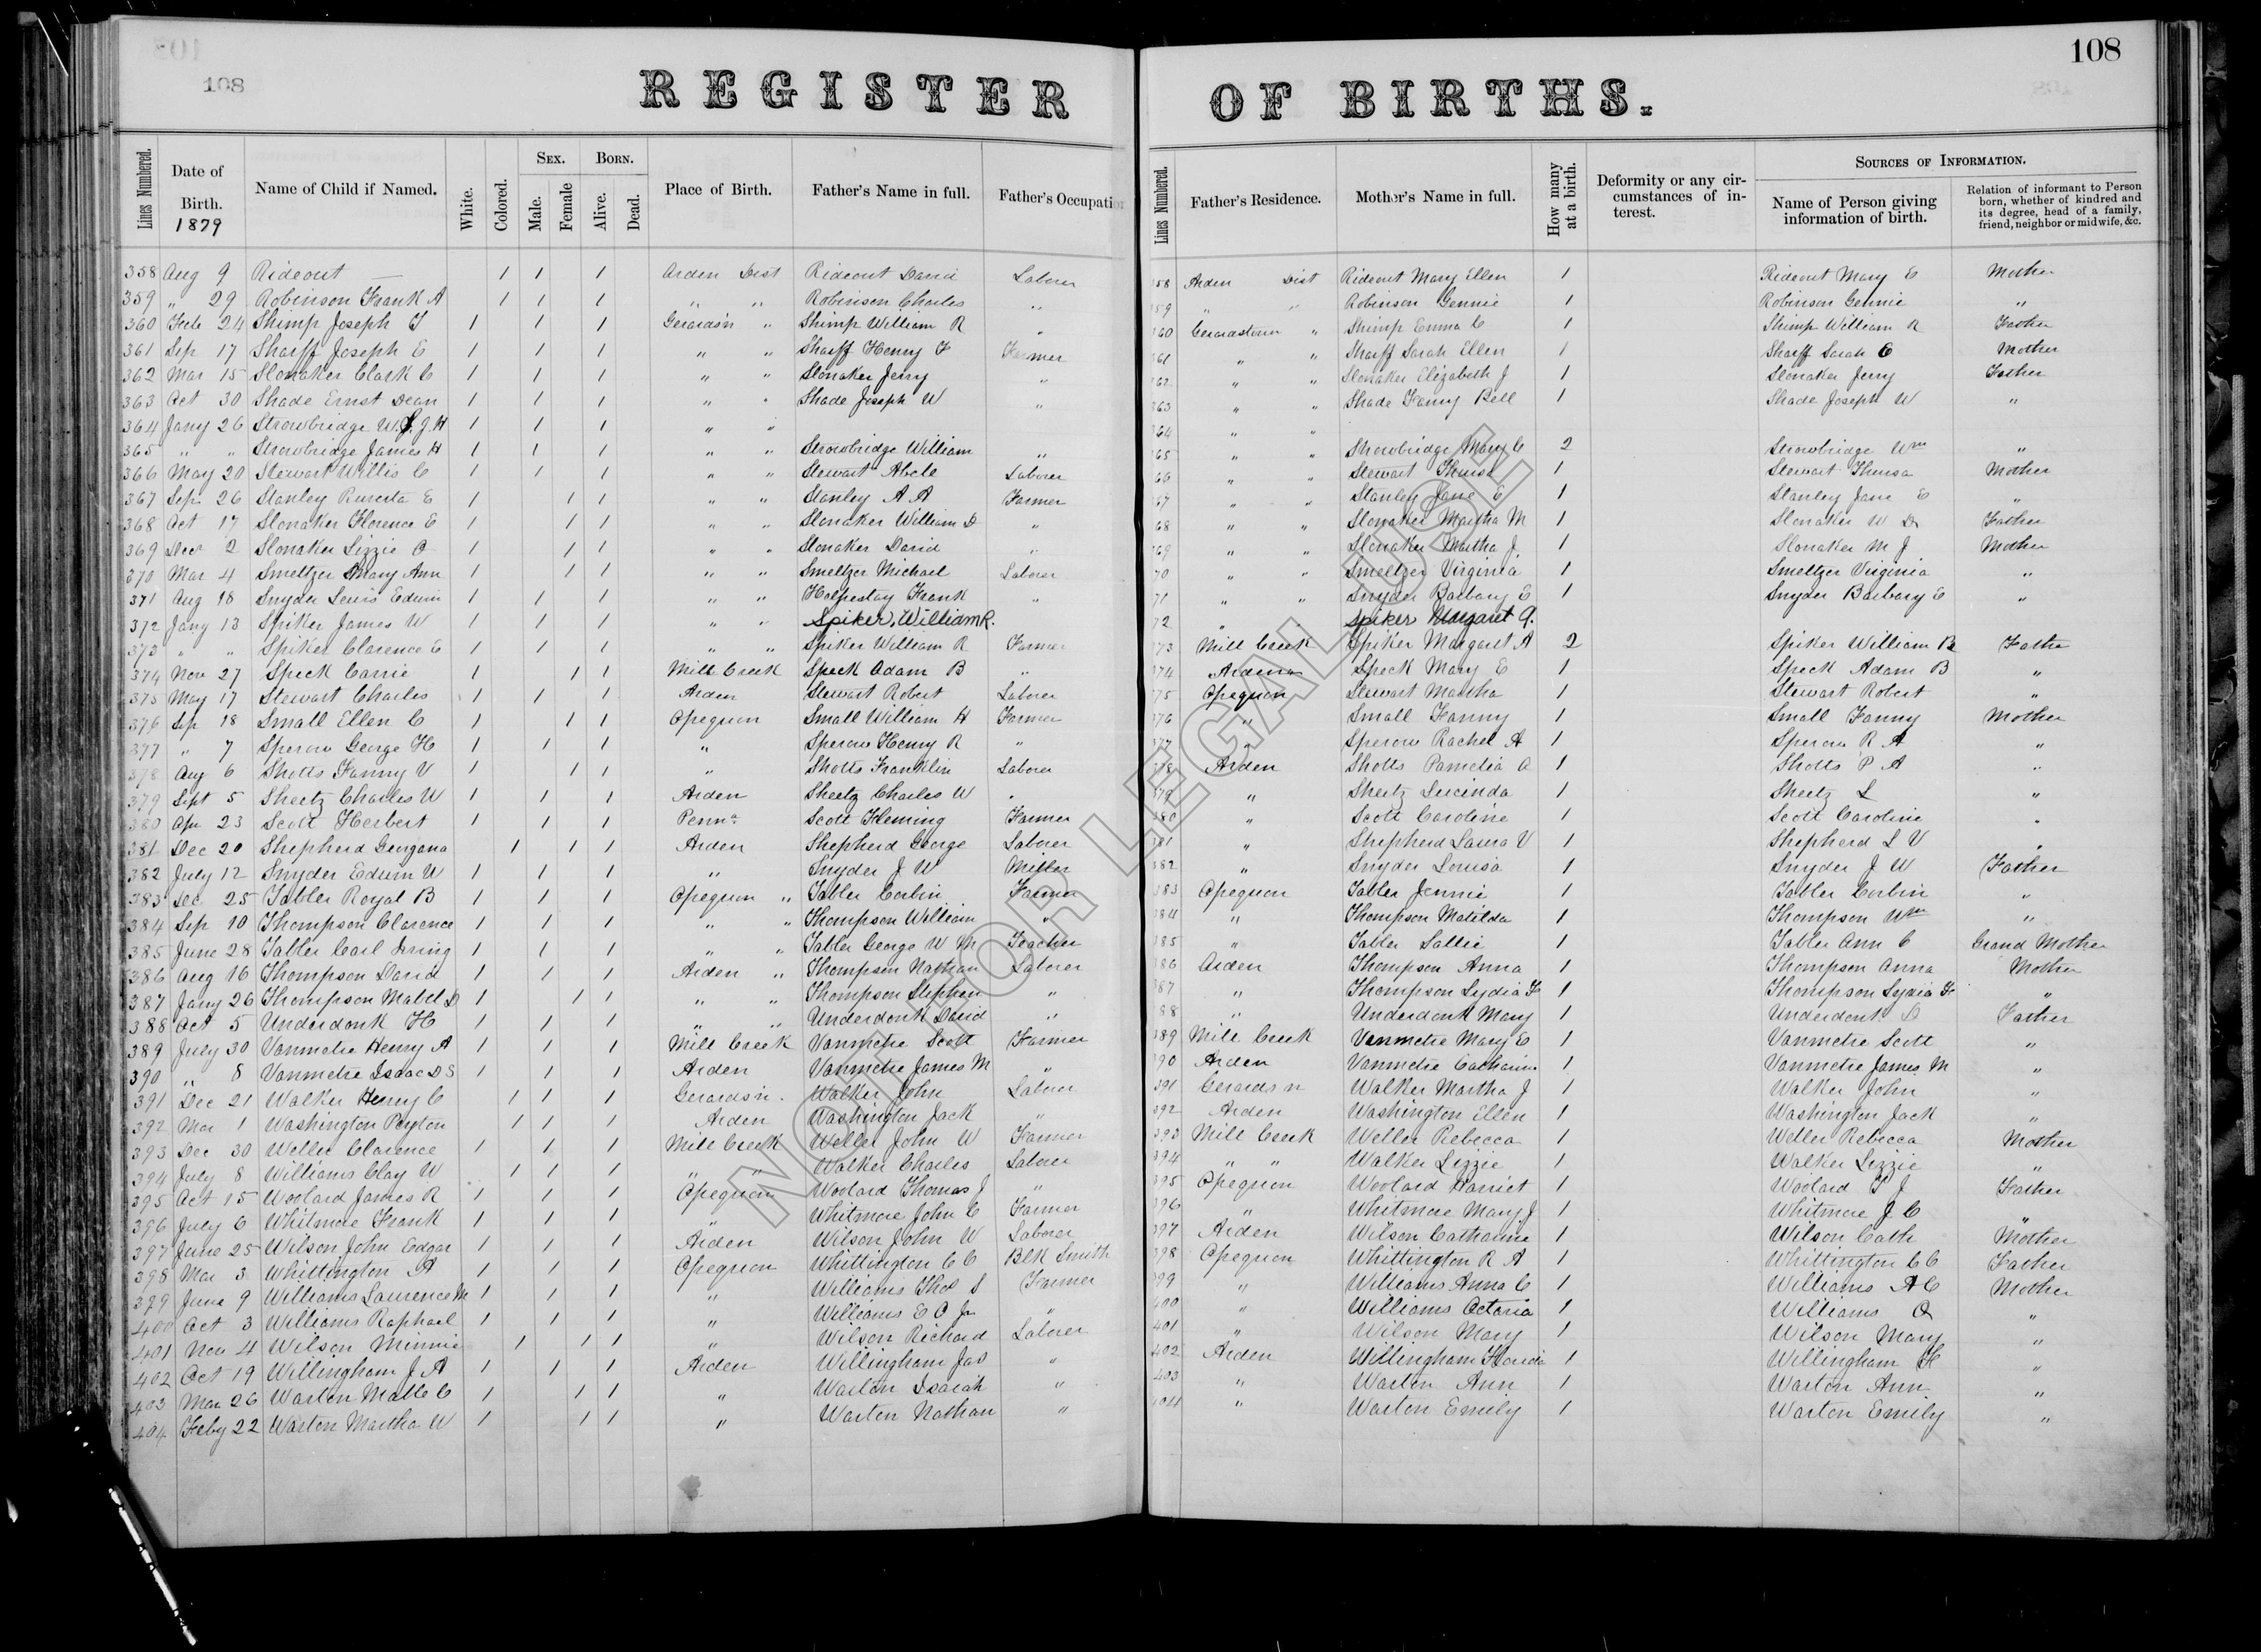 108
108
REGISTER OF BIRTHS.
Lines Numbered. Date of Birth. 1879 Name of Child if Named. White. Colored. Sex. Male. Female Born. Alive. Dead. Place of Birth. Father's Name in full. Father's Occupation
Lines Numbered. Father's Residence. Mother's Name in full. How many at a birth. Deformity or any circumstances of interest. Sources of Information. Name of Person giving information of birth. Relation of informant to Person born, whether of kindred and its degree, head of a family, friend, neighbor or midwife, &c.
358 Aug 9 Rideout — 1 1 1 Arden Dist Rideout David Laborer Arden Dist Rideout Mary Ellen 1 Rideout Mary E Mother
359 " 29 Robinson Frank A 1 1 1 " " Robinson Charles " " " Robinson Gennie 1 Robinson Gennie "
360 Feb 24 Shimp Joseph T 1 1 1 Gerards'n " Shimp William R " Gerardstown " Shimp Emma C 1 Shimp William R Father
361 Sep 17 Sharff Joseph E 1 1 1 " " Sharff Henry F Farmer " " Sharff Sarah Ellen 1 Sharff Sarah E Mother
362 Mar 15 Slonaker Clark C 1 1 1 " " Slonaker Jerry " " " Slonaker Elizabeth J 1 Slonaker Jerry Father
363 Oct 30 Shade Ernst Dean 1 1 1 " " Shade Joseph W " " " Shade Fanny Bell 1 Shade Joseph W "
364 Jany 26 Strowbridge 1 1 1 " " " "
365 " " Strowbridge James H 1 1 1 " " Strowbridge William " " " Strowbridge Mary C 2 Strowbridge Wm "
366 May 20 Stewart Willis C 1 1 1 " " Stewart Laborer " " Stewart 1 Stewart Mother
367 Sep 26 Stanley E 1 1 1 " " Stanley A A Farmer " " Stanley Jane E 1 Stanley Jane E "
368 Oct 17 Slonaker Florence E 1 1 1 " " Slonaker William D " " " Slonaker Martha M 1 Slonaker W D Father
369 Dec 2 Slonaker Lizzie O 1 1 1 " " Slonaker David " " " Slonaker Martha J 1 Slonaker M J Mother
370 Mar 4 Smeltzer Mary Ann 1 1 1 " " Smeltzer Michael Laborer " " Smeltzer Virginia 1 Smeltzer Virginia "
371 Aug 18 Snyder Lewis Edwin 1 1 1 " " Frank " " " Snyder Barbary E 1 Snyder Barbary E "
372 Jany 13 Spiker James W 1 1 1 " " Spiker, William R. " Spiker Margaret A.
373 " " Spiker Clarence E 1 1 1 " " Spiker William R Farmer Mill Creek Spiker Margaret A 2 Spiker William R Father
374 Nov 27 Speck Carrie 1 1 1 Mill Creek Speck Adam B " Arden Speck Mary E 1 Speck Adam B "
375 May 17 Stewart Charles 1 1 1 Arden Stewart Robert Laborer Opequon Stewart Martha 1 Stewart Robert "
376 Sep 18 Small Ellen C 1 1 1 Opequon Small William H Farmer " Small Fanny 1 Small Fanny Mother
377 " 7 Sperow George H 1 1 1 " Sperow Henry R " " Sperow Rachel A 1 Sperow R A "
378 Aug 6 Shotts Fanny V 1 1 1 " Shotts Franklin Laborer Arden Shotts Pamelia A 1 Shotts P A "
379 Sept 5 Sheetz Charles W 1 1 1 Arden Sheetz Charles W " " Sheetz Lucinda 1 Sheetz L "
380 Apr 23 Scott Herbert 1 1 1 Penna Scott Fleming Farmer " Scott Caroline 1 Scott Caroline "
381 Dec 20 Shepherd Georgana 1 1 1 Arden Shepherd George Laborer " Shepherd Laura V 1 Shepherd L V "
382 July 12 Snyder Edwin W 1 1 1 " Snyder J W Miller " Snyder Louisa 1 Snyder J W Father
383 Dec 25 Tabler Royal B 1 1 1 Opequon " Tabler Corbin Farmer Opequon Tabler Jennie 1 Tabler Corbin "
384 Sep 10 Thompson Clarence 1 1 1 " " Thompson William " " Thompson Matilda 1 Thompson Wm "
385 June 28 Tabler Carl Irving 1 1 1 " " Tabler George W M Teacher " Tabler Sallie 1 Tabler Ann C Grand Mother
386 Aug 16 Thompson David 1 1 1 Arden " Thompson Nathan Laborer Arden Thompson Anna 1 Thompson Anna Mother
387 Jany 26 Thompson Mabel D 1 1 1 " " Thompson Stephen " " Thompson Lydia F 1 Thompson Lydia F "
388 Oct 5 Underdonk H 1 1 1 " " Underdonk David " " Underdonk Mary 1 Underdonk D Father
389 July 30 Vanmetre Henry A 1 1 1 Mill Creek Vanmetre Scott Farmer Mill Creek Vanmetre Mary E 1 Vanmetre Scott "
390 " 8 Vanmetre Isaac D S 1 1 1 Arden Vanmetre James M " Arden Vanmetre Catharine 1 Vanmetre James M "
391 Dec 21 Walker Henry C 1 1 1 Gerards'n Walker John Laborer Gerards'n Walker Martha J 1 Walker John "
392 Mar 1 Washington Peyton 1 1 1 Arden Washington Jack " Arden Washington Ellen 1 Washington Jack "
393 Dec 30 Weller Clarence 1 1 1 Mill Creek Weller John W Farmer Mill Creek Weller Rebecca 1 Weller Rebecca Mother
394 July 8 Williams Clay W 1 1 1 " " Walker Charles Laborer " " Walker Lizzie 1 Walker Lizzie "
395 Oct 15 Woolard James R 1 1 1 Opequon Woolard Thomas J " Opequon Woolard Harriet 1 Woolard T J Father
396 July 6 Whitmore Frank 1 1 1 " Whitmore John C Farmer " Whitmore Mary J 1 Whitmore J C "
397 June 25 Wilson John Edgar 1 1 1 Arden Wilson John W Laborer Arden Wilson Catharine 1 Wilson Cath Mother
398 Mar 3 Whittington A 1 1 1 Opequon Whittington C C Blk Smith Opequon Whittington R A 1 Whittington C C Father
399 June 9 Williams Laurence M 1 1 1 " Williams Thos S Farmer " Williams Anna C 1 Williams A C Mother
400 Oct 3 Williams Raphael 1 1 1 " Williams E O Jr " " Williams Octavia 1 Williams O "
401 Nov 4 Wilson Minnie 1 1 1 " Wilson Richard Laborer " Wilson Mary 1 Wilson Mary "
402 Oct 19 Willingham J A 1 1 1 Arden Willingham Jas " Arden Willingham Florida 1 Willingham F "
403 Mar 26 Warten C 1 1 1 " Warten Isaiah " " Warten Ann 1 Warten Ann "
404 Feby 22 Warten Martha W 1 1 1 " Warten Nathan " " Warten Emily 1 Warten Emily "
NOT FOR LEGAL USE